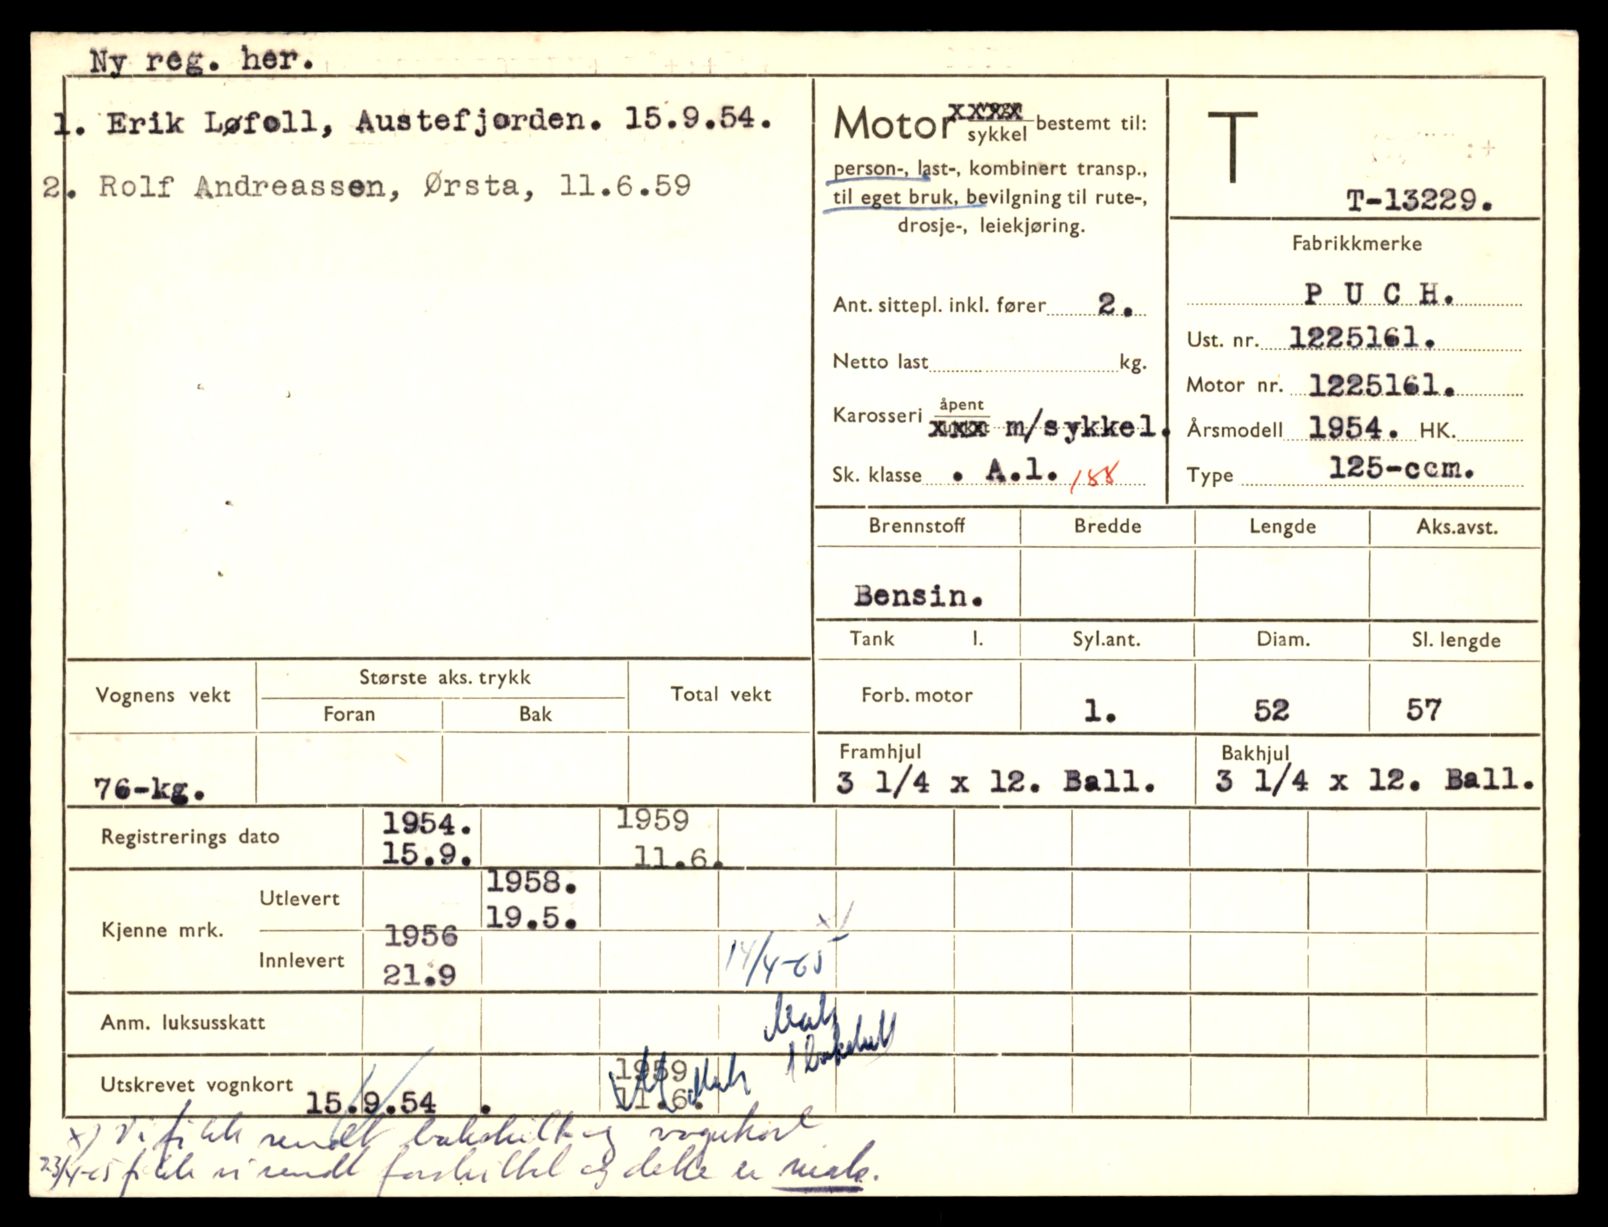 Ny reg. her.
1. Erik Løfoll, Austefjorden. 15.9.54.
2. Rolf Andreassen, Ørsta, 11.6.59
Motor vogn
sykkel bestemt til:
person-, last-, kombinert transp.,
til eget bruk, bevilgning til rute-,
drosje-, leiekjøring.
Ant. sittepl. inkl. fører 2.
Netto last kg.
Karosseri åpent
xxx m/sykkel.
Sk. klasse . A.1. 188
T
T-13229.
Fabrikkmerke
P U C H.
Ust. nr. 1225161.
Motor nr. 1225161.
Årsmodell 1954. HK.
Type 125-ccm.
Brennstoff Bredde Lengde Aks.avst.
Bensin.
Tank l. Syl.ant. Diam. Sl. lengde
Forb. motor 1. 52 57
Framhjul Bakhjul
3 1/4 x 12. Ball. 3 1/4 x 12. Ball.
Vognens vekt Største aks. trykk Total vekt
Foran Bak
76-kg.
Registrerings dato 1954. 1959
15.9. 11.6.
Kjenne mrk. Utlevert 1958.
19.5.
Innlevert 1956
21.9
x)
14/4-65
Mak
1 bakskilt
Anm. luksusskatt
Utskrevet vognkort 15.9.54 . 1959
11.6. Mak
x) Vi fikk sendt bakskilt og vognkort
23/4-65 fikk vi sendt forskiltet og dette er mak.